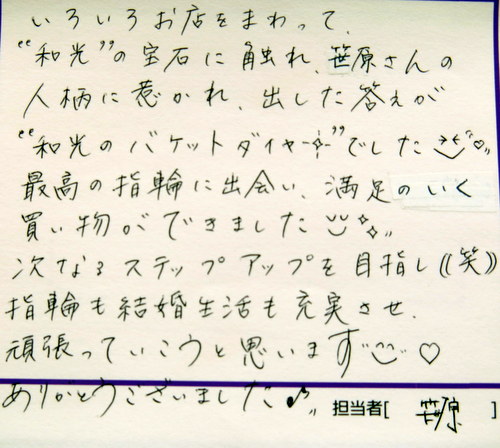 いろいろお店をまわって、
“和光”の宝石に触れ、笹原さんの
人柄に惹かれ、出した答えが
“和光のバケットダイヤ”でした
最高の指輪に出会い、満足のいく
買い物ができました
次なるステップアップを目指し((笑))
指輪も結婚生活も充実させ、
頑張っていこうと思います♡
ありがとうございました♪”
担当者[ 笹原 ]